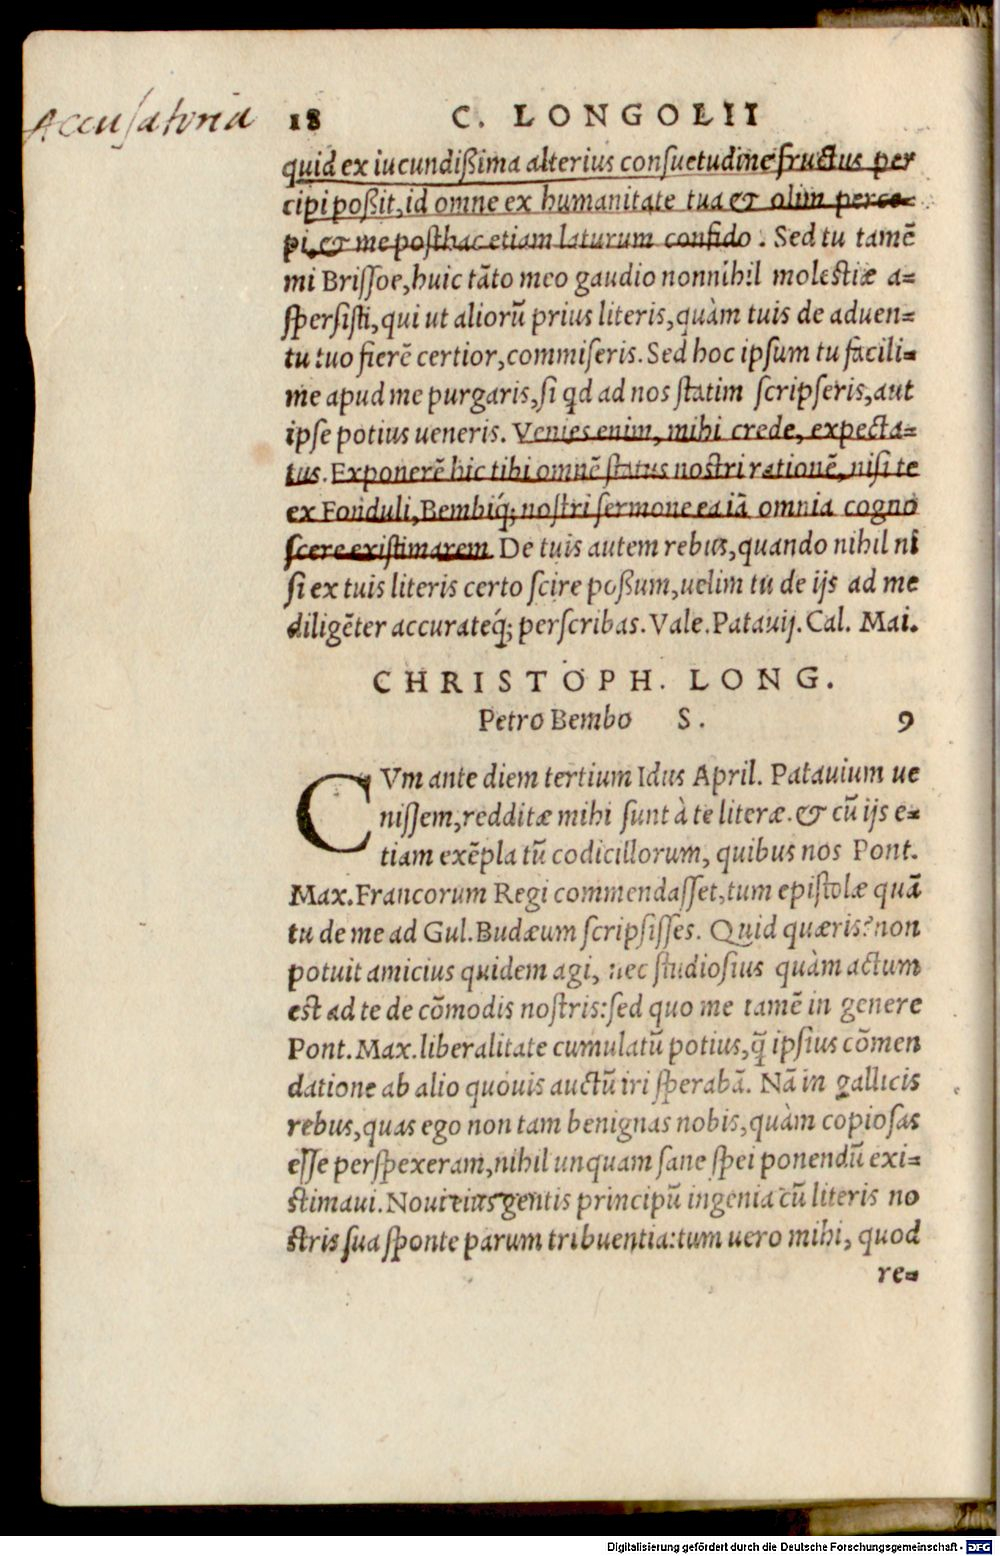 Accusatoria
18 C. LONGOLII
quid ex iucundißima alterius consuetudine fructus per
cipi poßit, id omne ex humanitate tua & olim perce-
pi, & me posthac etiam laturum confido. Sed tu tamē
mi Brissoe, huic tāto meo gaudio nonnihil molestiæ a-
spersisti, qui ut aliorū prius literis, quàm tuis de aduen-
tu tuo fierē certior, commiseris. Sed hoc ipsum tu facili-
me apud me purgaris, si qd ad nos statim scripseris, aut
ipse potius ueneris. Venies enim, mihi crede, expecta-
tus. Exponerē hic tibi omnē status nostri rationē, nisi te
ex Fonduli, Bembiq́; nostri sermone ea iā omnia cogno
scere existimarem. De tuis autem rebus, quando nihil ni
si ex tuis literis certo scire poßum, uelim tu de ijs ad me
diligēter accurateq́; perscribas. Vale. Patauij. Cal. Mai.
CHRISTOPH. LONG.
Petro Bembo S. 9
CVm ante diem tertium Idus April. Patauium ue
nissem, redditæ mihi sunt à te literæ. & cū ijs e-
tiam exēpla tū codicillorum, quibus nos Pont.
Max. Francorum Regi commendasset, tum epistolæ quā
tu de me ad Gul. Budæum scripsisses. Quid quæris? non
potuit amicius quidem agi, nec studiosius quàm actum
est ad te de cōmodis nostris: sed quo me tamē in genere
Pont. Max. liberalitate cumulatū potius, q̄ ipsius cōmen
datione ab alio quouis auctū iri sperabā. Nā in gallicis
rebus, quas ego non tam benignas nobis, quàm copiosas
esse perspexeram, nihil unquam sane spei ponendū exi-
stimaui. Noui eius gentis principū ingenia cū literis no
stris sua sponte parum tribuentia: tum uero mihi, quod
re-
Digitalisierung gefördert durch die Deutsche Forschungsgemeinschaft - DFG